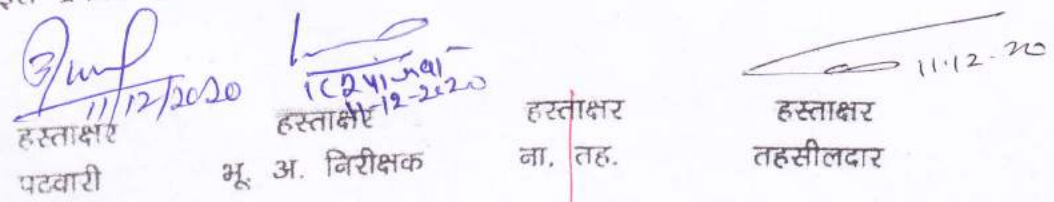 11/12/2020 11-12-2020 11.12-20
हस्ताक्षर हस्ताक्षर हस्ताक्षर हस्ताक्षर
पटवारी भू. अ. निरीक्षक ना. तह. तहसीलदार